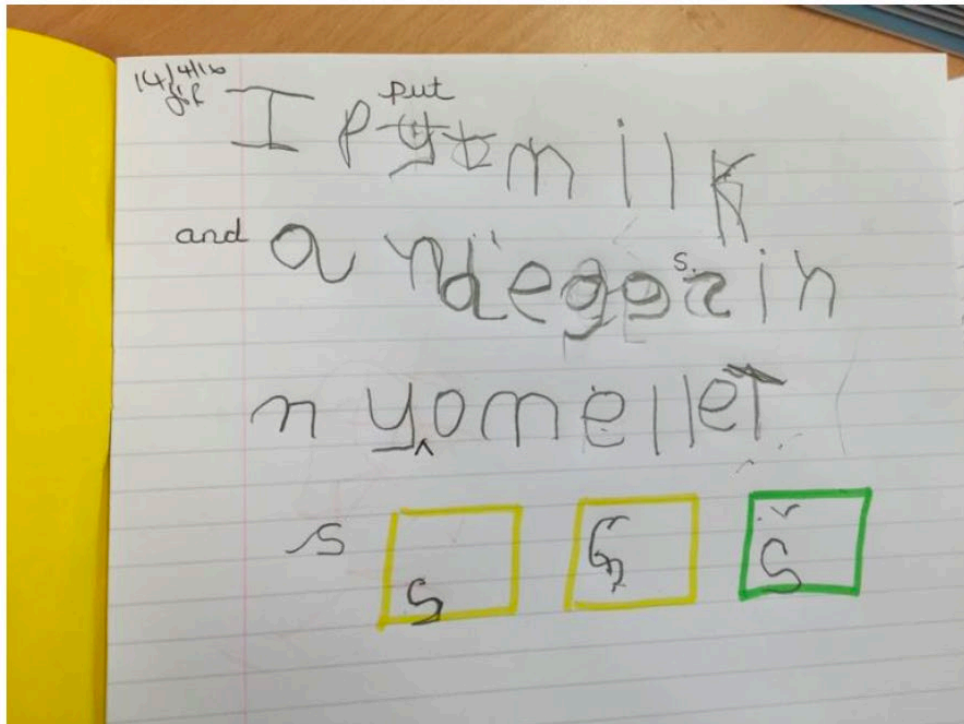 14/4/16
put
I put milk
and a nd eggs in
s.
n y omellet
s s s s